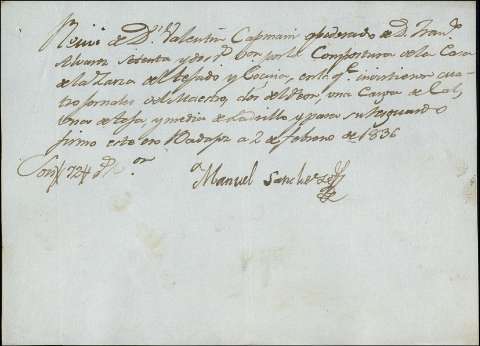 Recivi de Dn. Valentin Capmani apoderado de D. Franco.
Alvarez Setenta y dos rs. von por la Compostura de la Casa
de la Zarza del tejado y Cocina, en la qe. invirtieron cua
tro jornales de Maestro, dos de Peon, una Carga de Cal,
una de teja, y media de Ladrillo, y para su resguardo
firmo este en Badajoz a 2 de febrero de 1836
Son 72 Rs. von.
Manuel Sanchez